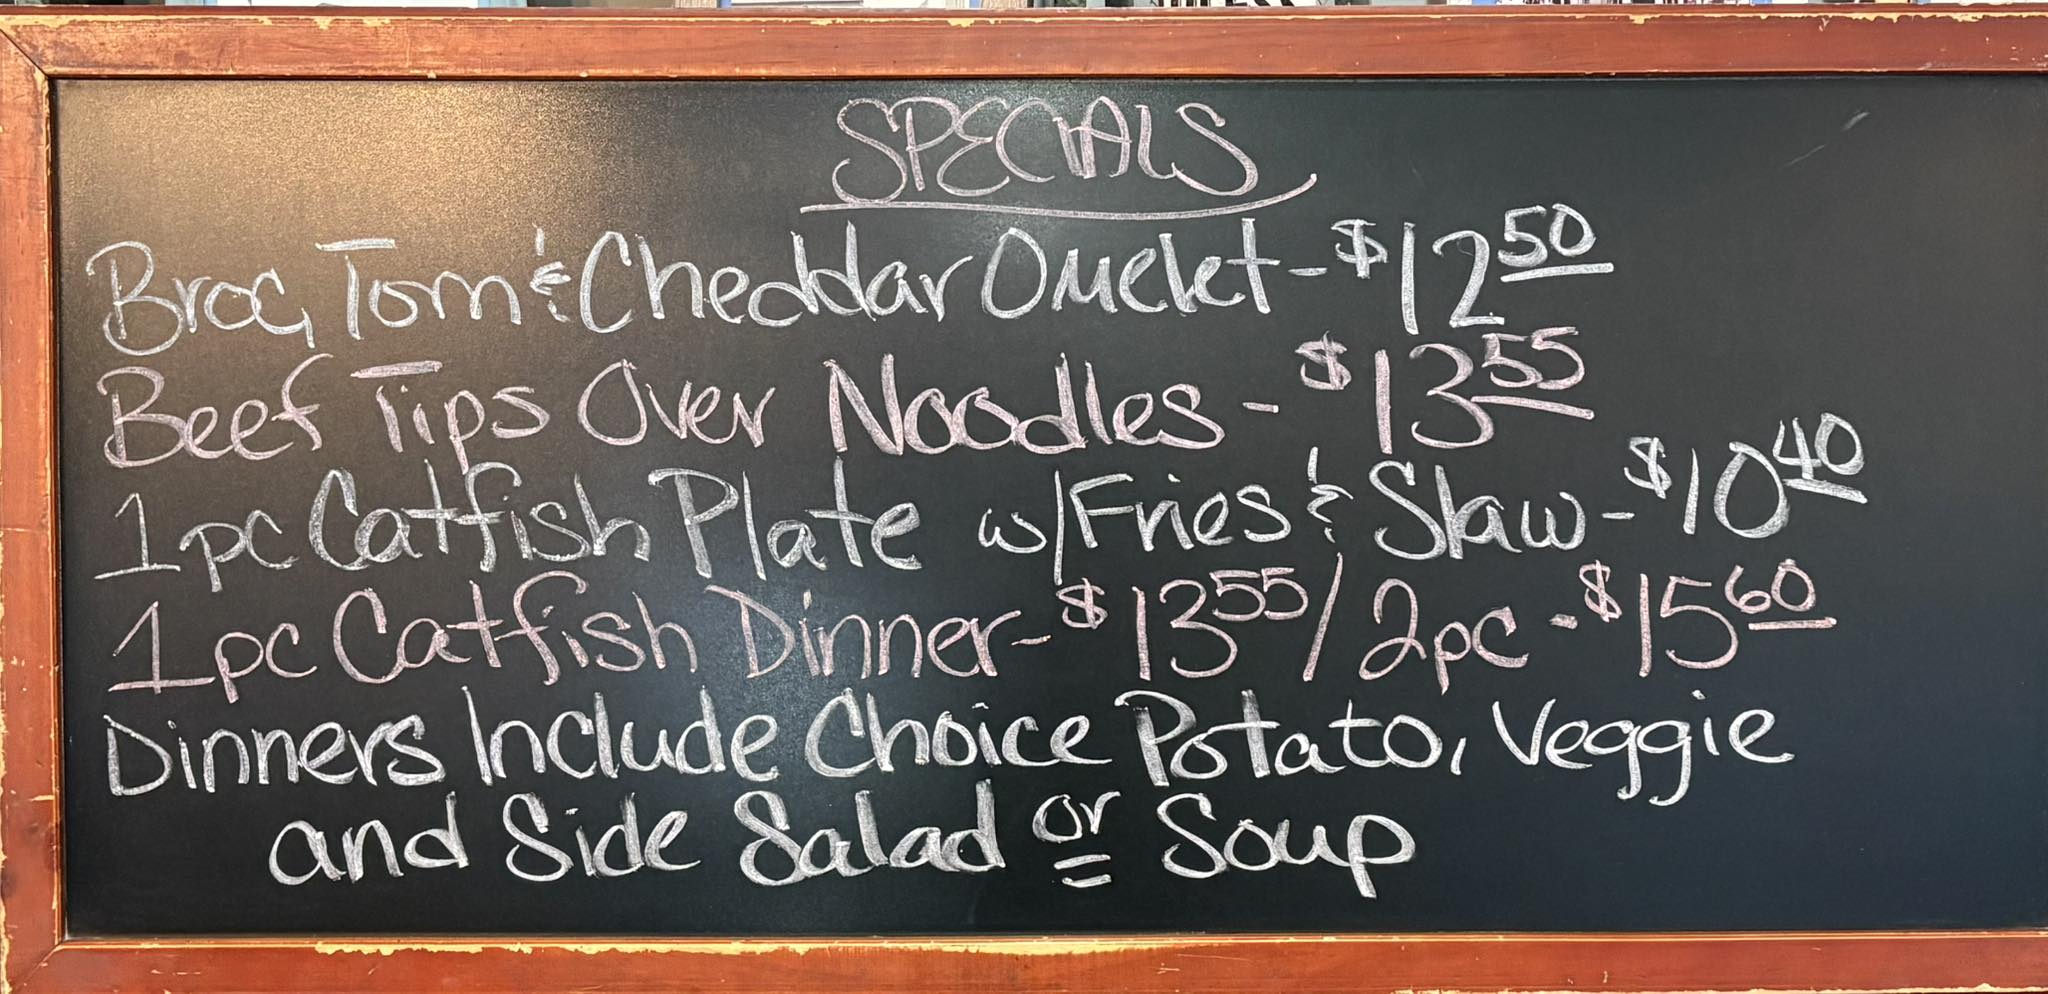 SPECIALS
Broc, Tom & Cheddar Omelet - $12 50
Beef Tips Over Noodles - $13 55
1pc Catfish Plate w/Fries & Slaw - $10 40
1pc Catfish Dinner - $13 55 / 2pc - $15 60
Dinners Include Choice Potato, Veggie
and Side Salad or Soup